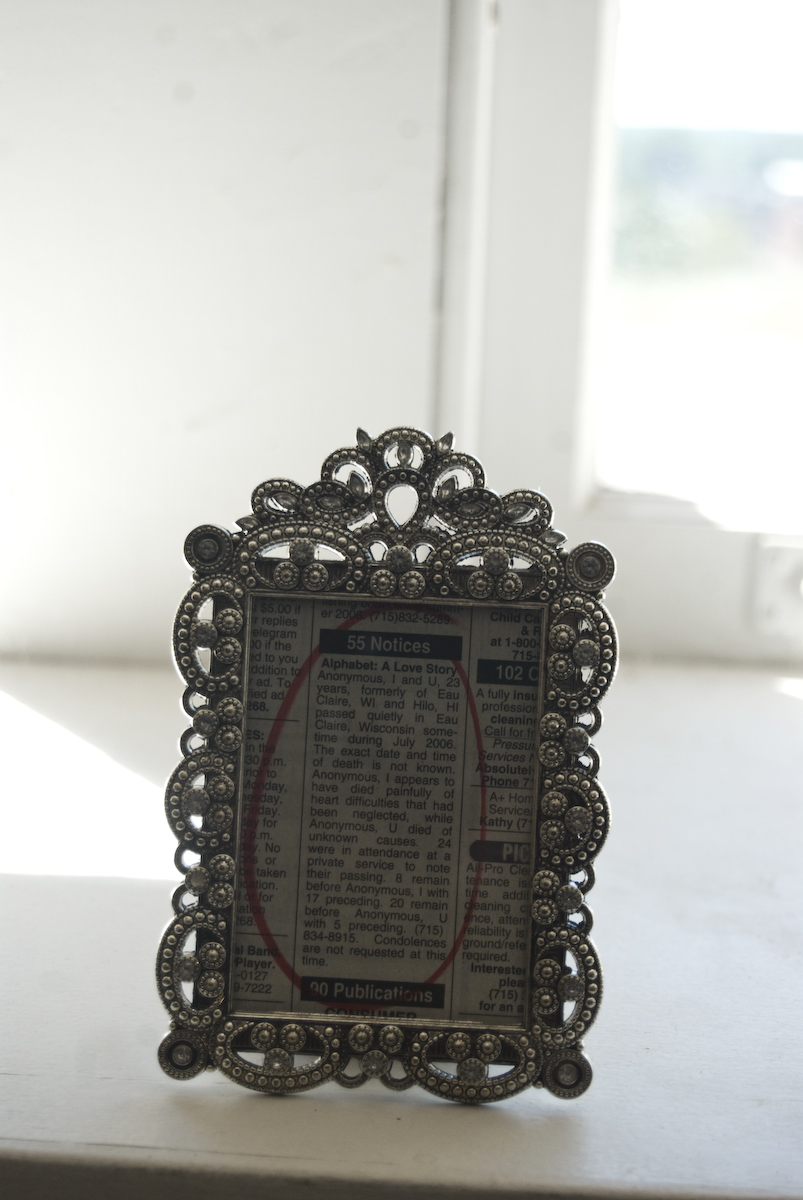 $5.00 if
r replies
elegram
0 if the
d to you
ddition to
ad. To
ied ad
268.
ES:
in the
30 p.m.
rior to
Monday,
esday,
Friday.
ay for
p.m.
pay. No
or
taken
ication.
for
268.
al Band
Player.
-0127
9-7222
er 2006. (715)832-5289
55 Notices
Alphabet: A Love Story
Anonymous, I and U, 23
years, formerly of Eau
Claire, WI and Hilo, HI
passed quietly in Eau
Claire, Wisconsin some-
time during July 2006.
The exact date and time
of death is not known.
Anonymous, I appears to
have died painfully of
heart difficulties that had
been neglected, while
Anonymous, U died of
unknown causes. 24
were in attendance at a
private service to note
their passing. 8 remain
before Anonymous, I with
17 preceding. 20 remain
before Anonymous, U
with 5 preceding. (715)
834-8915. Condolences
are not requested at this
time.
90 Publications
CONSUMER
Child Ca
&
at 1-800
715-
102 C
A fully insu
profession
cleaning
Call for fr
Pressu
Services
Absolutel
Phone 7
A+ Hom
Service
Kathy (71
PIC
All-Pro Cle
tenance is
time addi
cleaning c
ence, atten
reliability is
ground/refe
required.
Intereste
plea
(715)
for an a